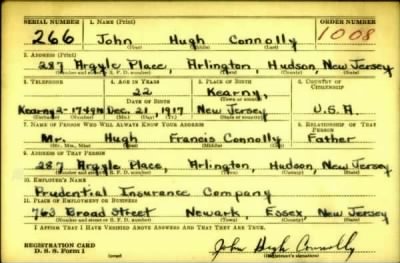 SERIAL NUMBER 1. NAME (Print) ORDER NUMBER
266 John Hugh Connolly 1008
(First) (Middle) (Last)
2. ADDRESS (Print)
287 Argyle Place, Arlington Hudson, New Jersey
(Number and street or R. F. D. number) (Town) (County) (State)
3. TELEPHONE 4. AGE IN YEARS 5. PLACE OF BIRTH 6. COUNTRY OF CITIZENSHIP
22 Kearny,
DATE OF BIRTH (Town or county)
Kearny 2-1749M Dec. 21, 1917 New Jersey U.S.A.
(Exchange) (No.) (Mo.) (Day) (Yr.) (State or country)
7. NAME OF PERSON WHO WILL ALWAYS KNOW YOUR ADDRESS 8. RELATIONSHIP OF THAT PERSON
Mr. Hugh Francis Connolly Father
(Mr., Mrs., Miss) (First) (Middle) (Last)
9. ADDRESS OF THAT PERSON
287 Argyle Place, Arlington, Hudson, New Jersey
(Number and street or R. F. D. number) (Town) (County) (State)
10. EMPLOYER'S NAME
Prudential Insurance Company
11. PLACE OF EMPLOYMENT OR BUSINESS
763 Broad Street Newark, Essex, New Jersey
(Number and street or R. F. D. number) (Town) (County) (State)
I AFFIRM THAT I HAVE VERIFIED ABOVE ANSWERS AND THAT THEY ARE TRUE.
REGISTRATION CARD
D. S. S. Form 1 (over) John Hugh Connolly